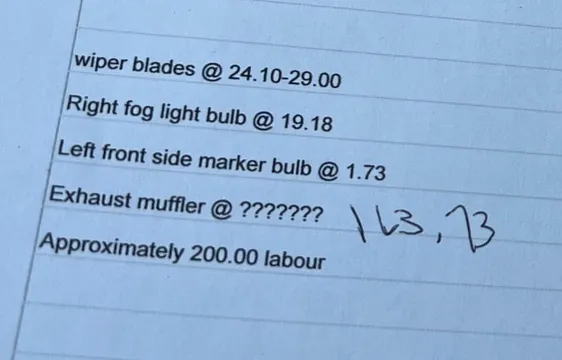 wiper blades @ 24.10-29.00
Right fog light bulb @ 19.18
Left front side marker bulb @ 1.73
Exhaust muffler @ ??????? 163,73
Approximately 200.00 labour